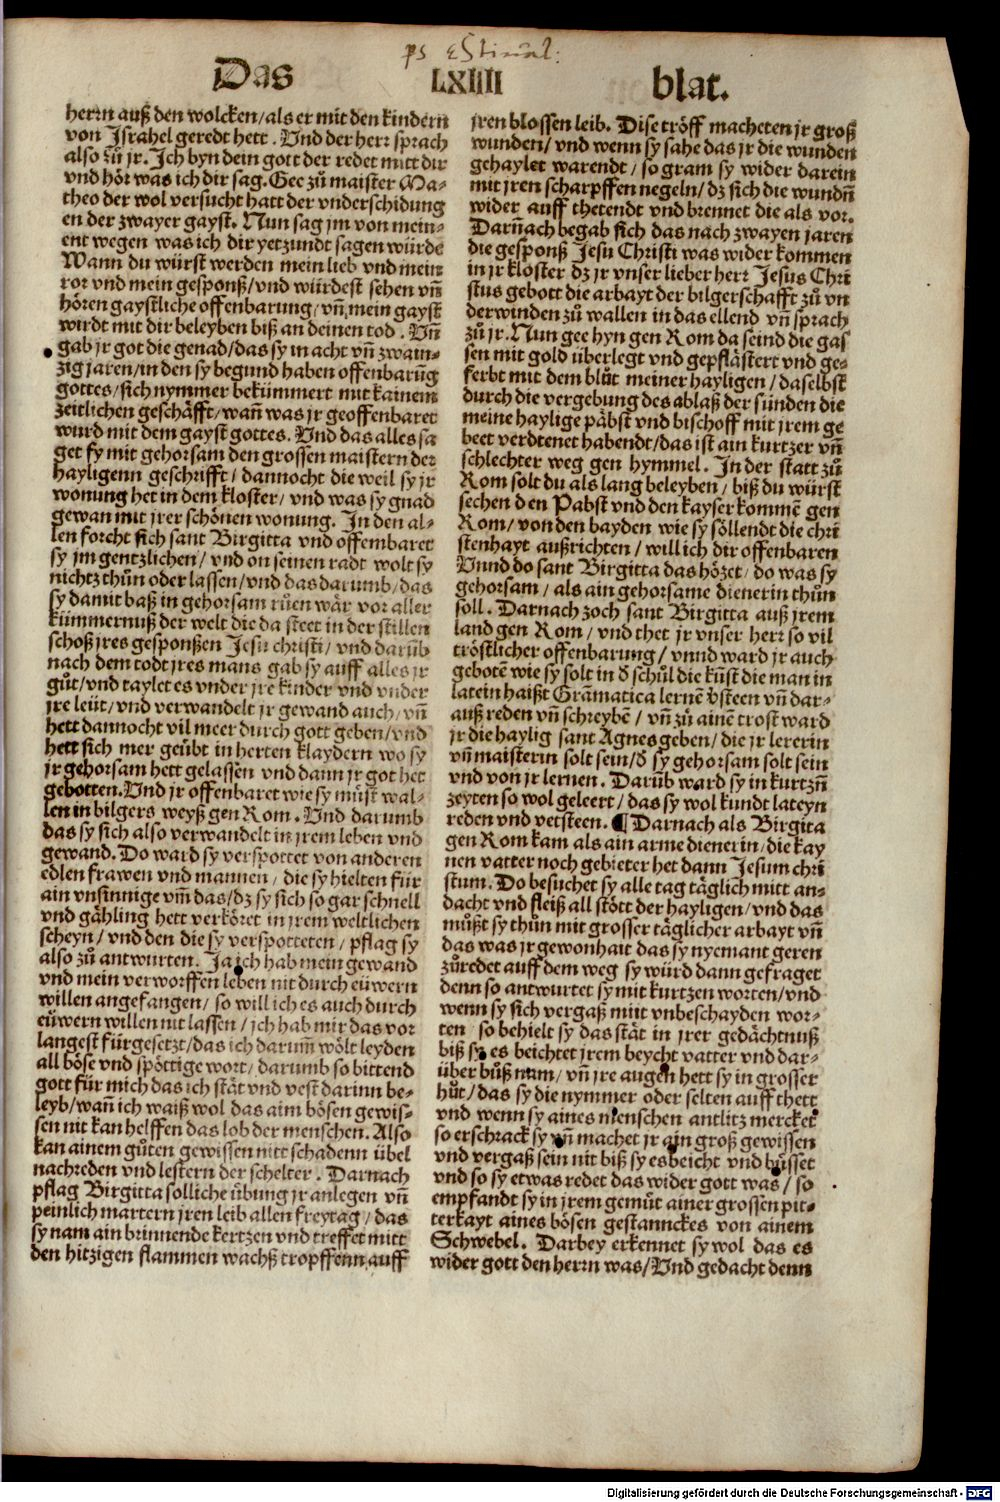 ps Estiual:
Das LXIIII blat.
herrn auß den wolcken/als er mit den kindern
von Jsrahel geredt hett. Vnd der herr sprach
also zů jr. Jch byn dein gott der redet mitt dir
vnd hör was ich dir sag. Gee zů maister Ma-
theo der wol versucht hatt der vnderschidung
en der zwayer gayst. Nun sag jm von mein-
ent wegen was ich dir yetzundt sagen würde
Wann du würst werden mein lieb vnd mein
ror vnd mein gesponß/vnd würdest sehen vñ
hören gaystliche offenbarung/vñ mein gayst
wirdt mit dir beleyben biß an deinen tod. Vñ
gab jr got die genad/das sy in acht vñ zwain-
zig jaren/in den sy begund haben offenbarũg
gottes/sich nymmer bekümmert mit kainem
zeitlichen geschäfft/wañ was jr geoffenbaret
wurd mit dem gayst gottes. Vnd das alles sa
get sy mit gehorsam den grossen maistern der
hayligenn geschrifft/dannocht die weil sy jr
wonung het in dem kloster/vnd was sy gnad
gewan mit jrer schönen wonung. Jn den al-
len forcht sich sant Birgitta vnd offembaret
sy jm gentzlichen/vnd on seinen radt wolt sy
nichtz thůn oder lassen/vnd das darumb/das
sy damit baß in gehorsam růen wär vor aller
kümmernuß der welt die da steet in der stillen
schoß jres gesponßen Jesu christi/vnd darũb
nach dem todt jres mans gab sy auff alles jr
gůt/vnd taylet es vnder jre kinder vnd vnder
jre leüt/vnd verwandelt jr gewand auch/vñ
hett dannocht vil meer durch gott geben/vnd
hett sich mer geübt in herten klaydern wo sy
jr gehorsam hett gelassen vnd dann jr got het
gebotten. Vnd jr offenbaret wie sy müst wal-
len in bilgers weyß gen Rom. Vnd darumb
das sy sich also verwandelt in jrem leben vnd
gewand. Do ward sy verspottet von anderen
edlen frawen vnd mannen/die sy hielten für
ain vnsinnige vm̃ das/dz sy sich so gar schnell
vnd gähling hett verköret in jrem weltlichen
scheyn/vnd den die sy verspotteten/pflag sy
also zů antwurten. Ja ich hab mein gewand
vnd mein verworffen leben nit durch eüwern
willen angefangen/so will ich es auch durch
eüwern willen nit lassen/jch hab mir das vor
langest fürgesetzt/das ich darum̃ wölt leyden
all böse vnd spöttige wort/darumb so bittend
gott für mich das ich stät vnd vest darinn be-
leyb/wañ ich waiß wol das aim bösen gewis-
sen nit kan helffen das lob der menschen. Also
kan ainem gůten gewissen nitt schadenn übel
nachreden vnd lestern der schelter. Darnach
pflag Birgitta solliche übung jr anlegen vñ
peinlich martern jren leib allen freytag/das
sy nam ain brinnende kertzen vnd treffet mitt
den hitzigen flammen wachß tropffenn auff
jren blossen leib. Dise tröff macheten jr groß
wunden/vnd wenn sy sahe das jr die wunden
gehaylet warendt/so gram sy wider darein
mit jren scharpffen negeln/dz sich die wundñ
wider auff thetendt vnd brennet die als vor.
Darñach begab sich das nach zwayen jaren
die gesponß Jesu Christi was wider kommen
in jr kloster dz jr vnser lieber herr Jesus Chri
stus gebott die arbayt der bilgerschafft zů vn
derwinden zů wallen in das ellend vñ sprach
zů jr. Nun gee hyn gen Rom da seind die gas
sen mit gold überlegt vnd gepflästert vnd ge-
ferbt mit dem blůt meiner hayligen/daselbst
durch die vergebung des ablaß der sünden die
meine haylige päbst vnd bischoff mit jrem ge
beet verdienet habendt/das ist ain kurtzer vñ
schlechter weg gen hymmel. Jn der statt zů
Rom solt du als lang beleyben/biß du würst
sechen den Pabst vnd den kayser kommẽ gen
Rom/von den bayden wie sy söllendt die chri
stenhayt außrichten/will ich dir offenbaren
Vnnd do sant Birgitta das hözet/do was sy
gehorsam/als ain gehorsame dienerin thůn
soll. Darnach zoch sant Birgitta auß jrem
land gen Rom/vnd thet jr vnser herr so vil
tröstlicher offenbarung/vnnd ward jr auch
gebotẽ wie sy solt in d̕ schůl die kũst die man in
latein haißt Grãmatica lernẽ v̕steen vñ dar-
auß reden vñ schreybẽ/vñ zů ainẽ trost ward
jr die haylig sant Agnes geben/die jr lererin
vñ maisterin solt sein/d̕ sy gehorsam solt sein
vnd von jr lernen. Darũb ward sy in kurtzñ
zeyten so wol geleert/das sy wol kundt lateyn
reden vnd versteen. ¶ Darnach als Birgita
gen Rom kam als ain arme dienerin/die kay
nen vatter noch gebieter het dann Jesum chri
stum. Do besuchet sy alle tag täglich mitt an-
dacht vnd fleiß all stött der hayligen/vnd das
můßt sy thůn mit grosser täglicher arbayt vñ
das was jr gewonhait das sy nyemant geren
zůredet auff dem weg sy würd dann gefraget
denn so antwurtet sy mit kurtzen worten/vnd
wenn sy sich vergaß mitt vnbeschayden wor-
ten so behielt sy das stät in jrer gedächtnuß
biß sy es beichtet jrem beycht vatter vnd dar-
über bůß nam/vñ jre augen hett sy in grosser
hůt/das sy die nymmer oder selten auff thett
vnd wenn sy aines menschen antlitz mercket
so erschrack sy vñ machet jr ain groß gewissen
vnd vergaß sein nit biß sy es beicht vnd büsset
vnd so sy etwas redet das wider gott was/so
empfandt sy in jrem gemüt ainer grossen pit-
terkayt aines bösen gestannckes von ainem
Schwebel. Darbey erkennet sy wol das es
wider gott den herrn was/Vnd gedacht denn
Digitalisierung gefördert durch die Deutsche Forschungsgemeinschaft - DFG